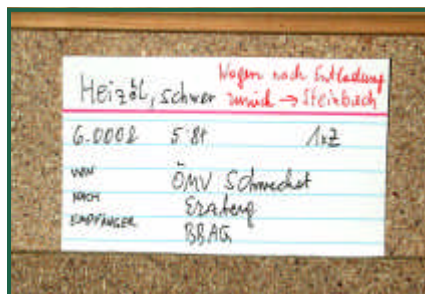 Heizöl, schwer
Wagen nach Entladung
zurück → Steinbach
6.000l 5.8t 1xZ
VON ÖMV Schwechat
NACH Erzberg
EMPFÄNGER BBAG